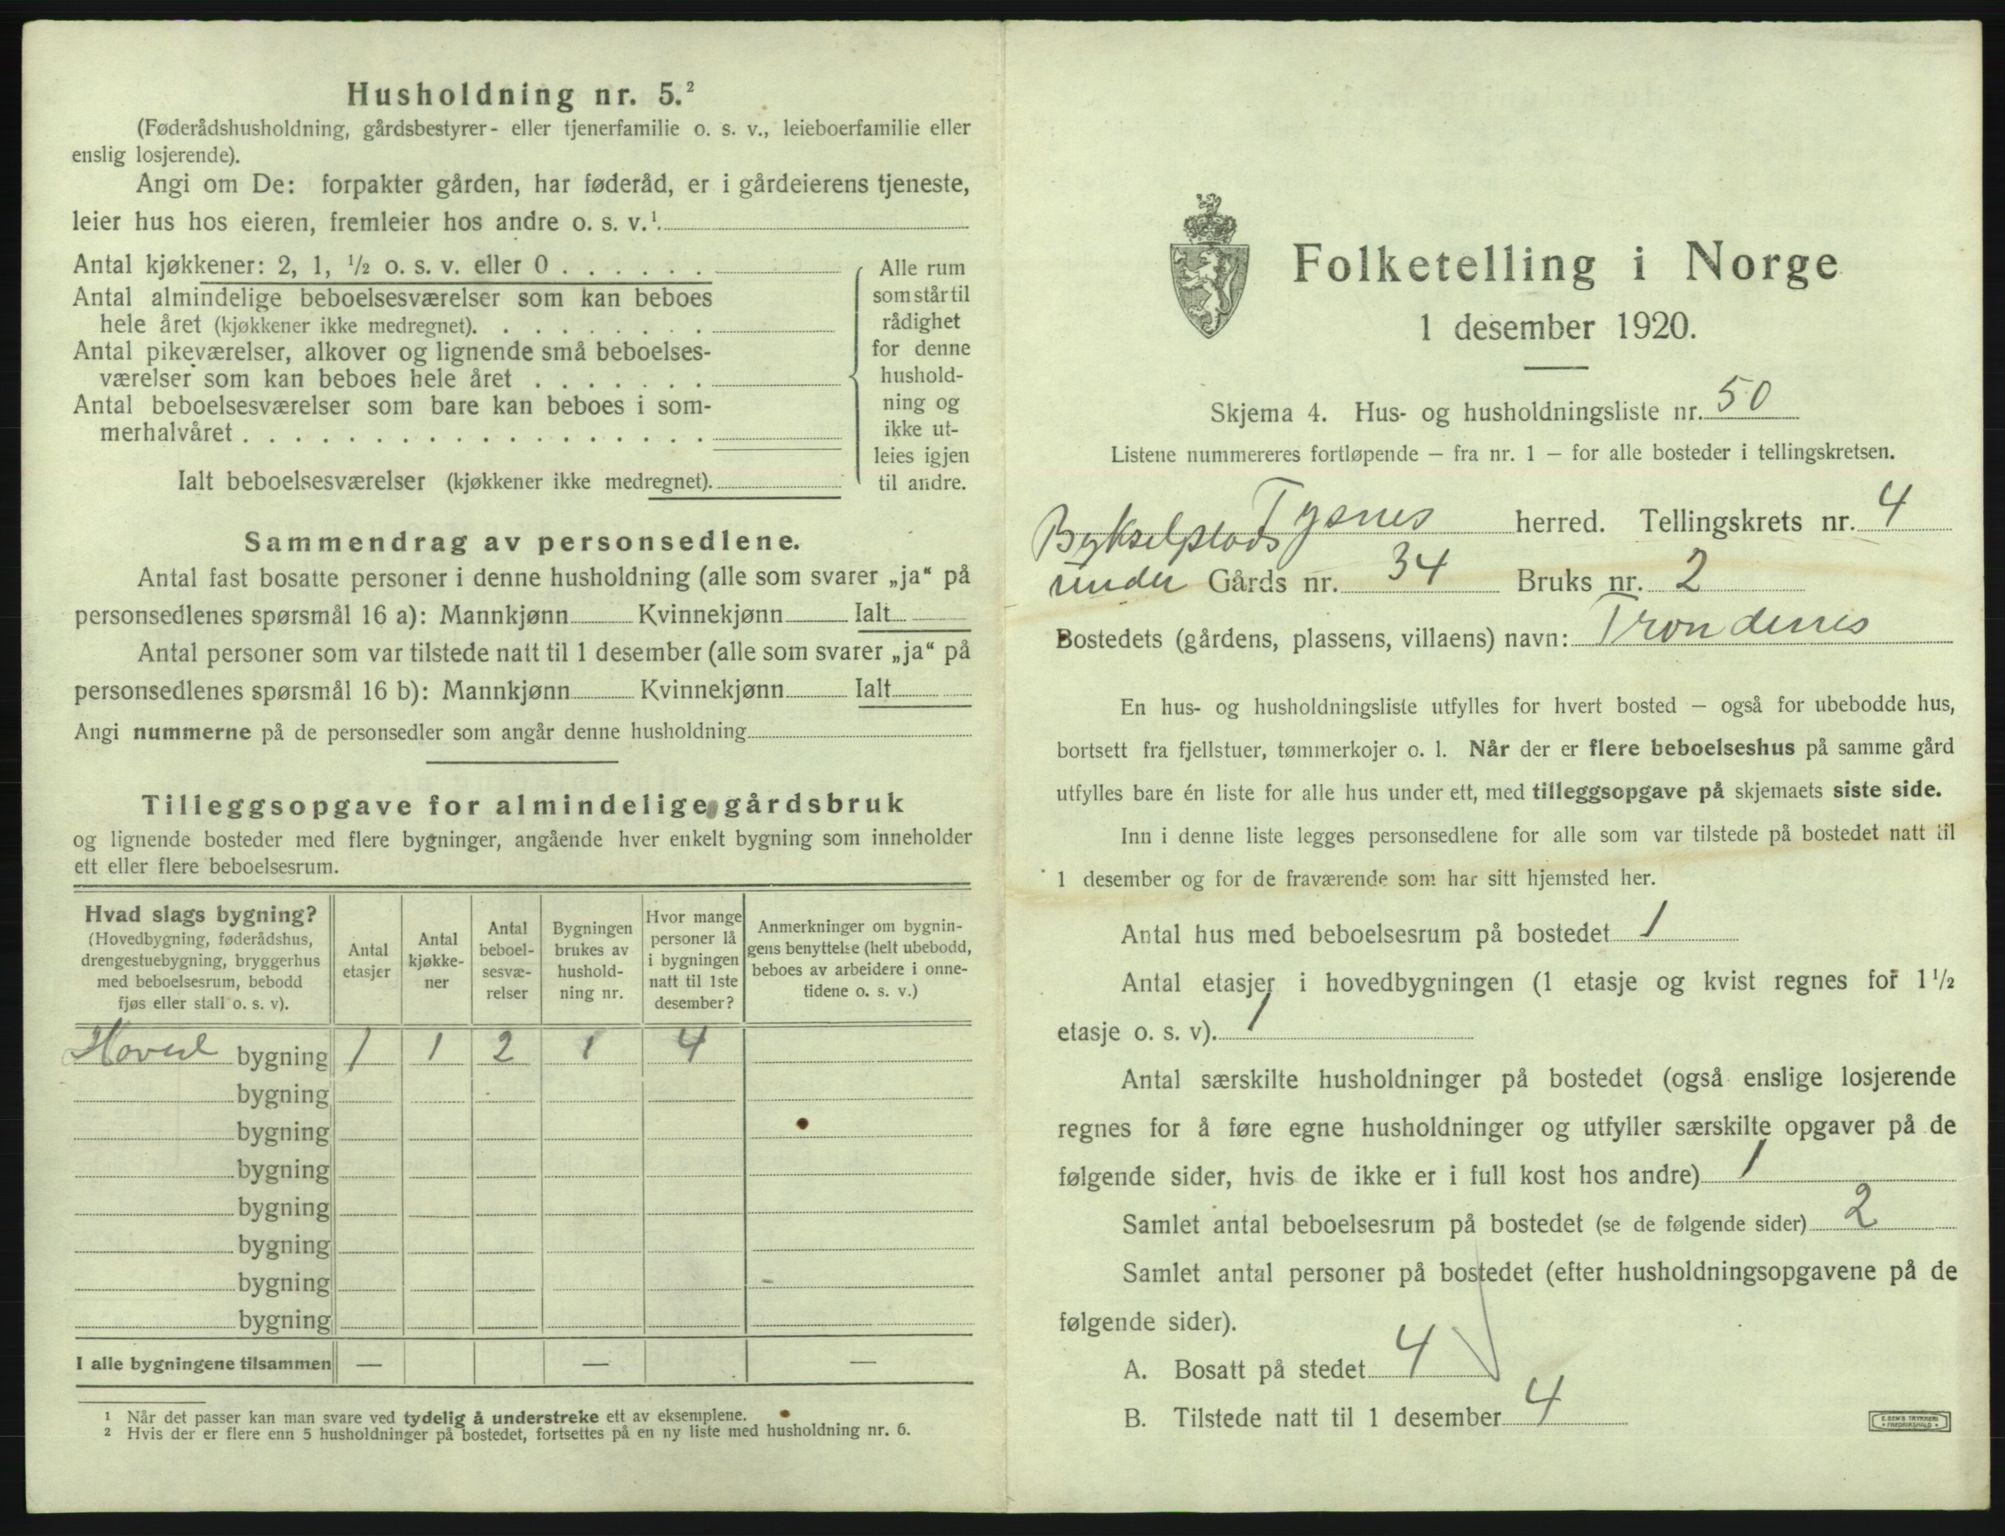 Husholdning nr. 5.²
(Føderådshusholdning, gårdsbestyrer- eller tjenerfamilie o. s. v., leieboerfamilie eller
enslig losjerende).
Angi om De: forpakter gården, har føderåd, er i gårdeierens tjeneste,
leier hus hos eieren, fremleier hos andre o. s. v.¹.
Antal kjøkkener: 2, 1, ½ o. s. v. eller 0 . . . . . .
Antal almindelige beboelsesværelser som kan beboes
hele året (kjøkkener ikke medregnet). . . . . . . . .
Antal pikeværelser, alkover og lignende små beboelses-
værelser som kan beboes hele året . . . . . . .
Antal beboelsesværelser som bare kan beboes i som-
merhalvåret . . . . . . . . . . . . . . . . . .
Ialt beboelsesværelser (kjøkkener ikke medregnet).
Alle rum
som står til
rådighet
for denne
hushold-
ning og
ikke ut-
leies igjen
til andre.
Sammendrag av personsedlene.
Antal fast bosatte personer i denne husholdning (alle som svarer „ja“ på
personsedlenes spørsmål 16 a): Mannkjønn Kvinnekjønn Ialt
Antal personer som var tilstede natt til 1 desember (alle som svarer „ja“ på
personsedlenes spørsmål 16 b): Mannkjønn Kvinnekjønn Ialt
Angi nummerne på de personsedler som angår denne husholdning
Tilleggsopgave for almindelige gårdsbruk
og lignende bosteder med flere bygninger, angående hver enkelt bygning som inneholder
ett eller flere beboelsesrum.
Hvad slags bygning?
(Hovedbygning, føderådshus,
drengestuebygning, bryggerhus
med beboelsesrum, bebodd
fjøs eller stall o. s. v).
Antal
etasjer
Antal
kjøkke-
ner
Antal
beboel-
sesvæ-
relser
Bygningen
brukes av
hushold-
ning nr.
Hvor mange
personer lå
i bygningen
natt til 1ste
desember?
Anmerkninger om bygnin-
gens benyttelse (helt ubebodd,
beboes av arbeidere i onne-
tidene o. s. v.)
Hoved bygning 1 1 2 1 4
bygning
bygning
bygning
bygning
bygning
bygning
bygning
I alle bygningene tilsammen — — —
1 Når det passer kan man svare ved tydelig å understreke ett av eksemplene.
2 Hvis der er flere enn 5 husholdninger på bostedet, fortsettes på en ny liste med husholdning nr. 6.
Folketelling i Norge
1 desember 1920.
Skjema 4. Hus- og husholdningsliste nr. 50
Listene nummereres fortløpende — fra nr. 1 — for alle bosteder i tellingskretsen.
Tysnes herred. Tellingskrets nr. 4
Bykselplads
under Gårds nr. 34 Bruks nr. 2
Bostedets (gårdens, plassens, villaens) navn: Trondenes
En hus- og husholdningsliste utfylles for hvert bosted — også for ubebodde hus,
bortsett fra fjellstuer, tømmerkojer o. l. Når der er flere beboelseshus på samme gård
utfylles bare én liste for alle hus under ett, med tilleggsopgave på skjemaets siste side.
Inn i denne liste legges personsedlene for alle som var tilstede på bostedet natt til
1 desember og for de fraværende som har sitt hjemsted her.
Antal hus med beboelsesrum på bostedet 1
Antal etasjer i hovedbygningen (1 etasje og kvist regnes for 1½
etasje o. s. v). 1
Antal særskilte husholdninger på bostedet (også enslige losjerende
regnes for å føre egne husholdninger og utfyller særskilte opgaver på de
følgende sider, hvis de ikke er i full kost hos andre) 1
Samlet antal beboelsesrum på bostedet (se de følgende sider) 2
Samlet antal personer på bostedet (efter husholdningsopgavene på de
følgende sider).
A. Bosatt på stedet 4
B. Tilstede natt til 1 desember 4